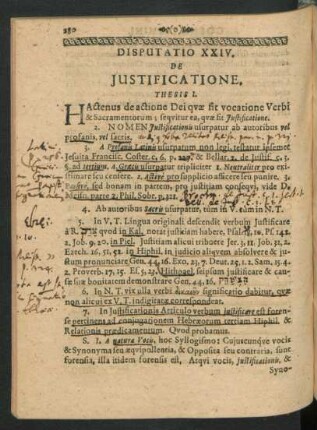 280
DISPUTATIO XXIV.
DE
JUSTIFICATIONE.
THESIS I.
HActenus de actione Dei quæ fit vocatione Verbi
& Sacramentorum; sequitur ea, quæ fit Justificatione.
2. NOMEN Justificationis usurpatur ab autoribus vel
profanis, vel sacris.
3. A Profanis Latinis usurpatum non legi, testatur ipsemet
Jesuita Francisc. Coster. c, 6, p. & Bellar. 2. de Justif. c. 3.
§. ad tertium. A Græcis usurpatur tripliciter 1. Neutraliter pro exi-
stimare censere. 2. Active pro supplicio afficere seu punire. 3.
Passive, sed bonam in partem, pro justitiam consequi, vide De
parte 2. Phil. Sobr. p. 311.
4. Ab autoribus Sacris usurpatur, tum in V. tum in N.T.
5. In V. T. Lingua originali descendit verbum Justificare
à R. quod in Kal. notat justitiam habere, Psal. 19, 10. Ps. 142.
2. Job. 9. 20. in Piel. Justitiam alicui tribuere Jer. 3, 11. Job. 31, 2.
Ezech. 16, 51, 52. in Hiphil. in judicio aliquem absolvere & ju-
stum pronunciare Gen. 44, 16. Exo, 23, 7. Deut. 25, 1. 2. Sam. 15. 4.
2. Proverb. 17, 15. Es. 5, 23. Hithpael. seipsum justificare & cau-
sæ suæ bonitatem demonstrare Gen. 44, 16.
6. In N. T. vix alia verbi significatio dabitur, quæ
non alicui ex V. T. indigitatæ correspondeat.
7. In Justificationis Articulo verbum justificare est foren-
se pertinens ad conjugationem Hebræorum tertiam Hiphil. &
Relationis prædicamentum. Quod probamus.
8. I. A natura Vocis, hoc Syllogismo: Cujuscunque vocis
& Synonyma seu æquipollentia, & Opposita seu contraria, sunt
forensia, illa itidem forensis est, Atqui vocis, Justificationis, &
Syno-